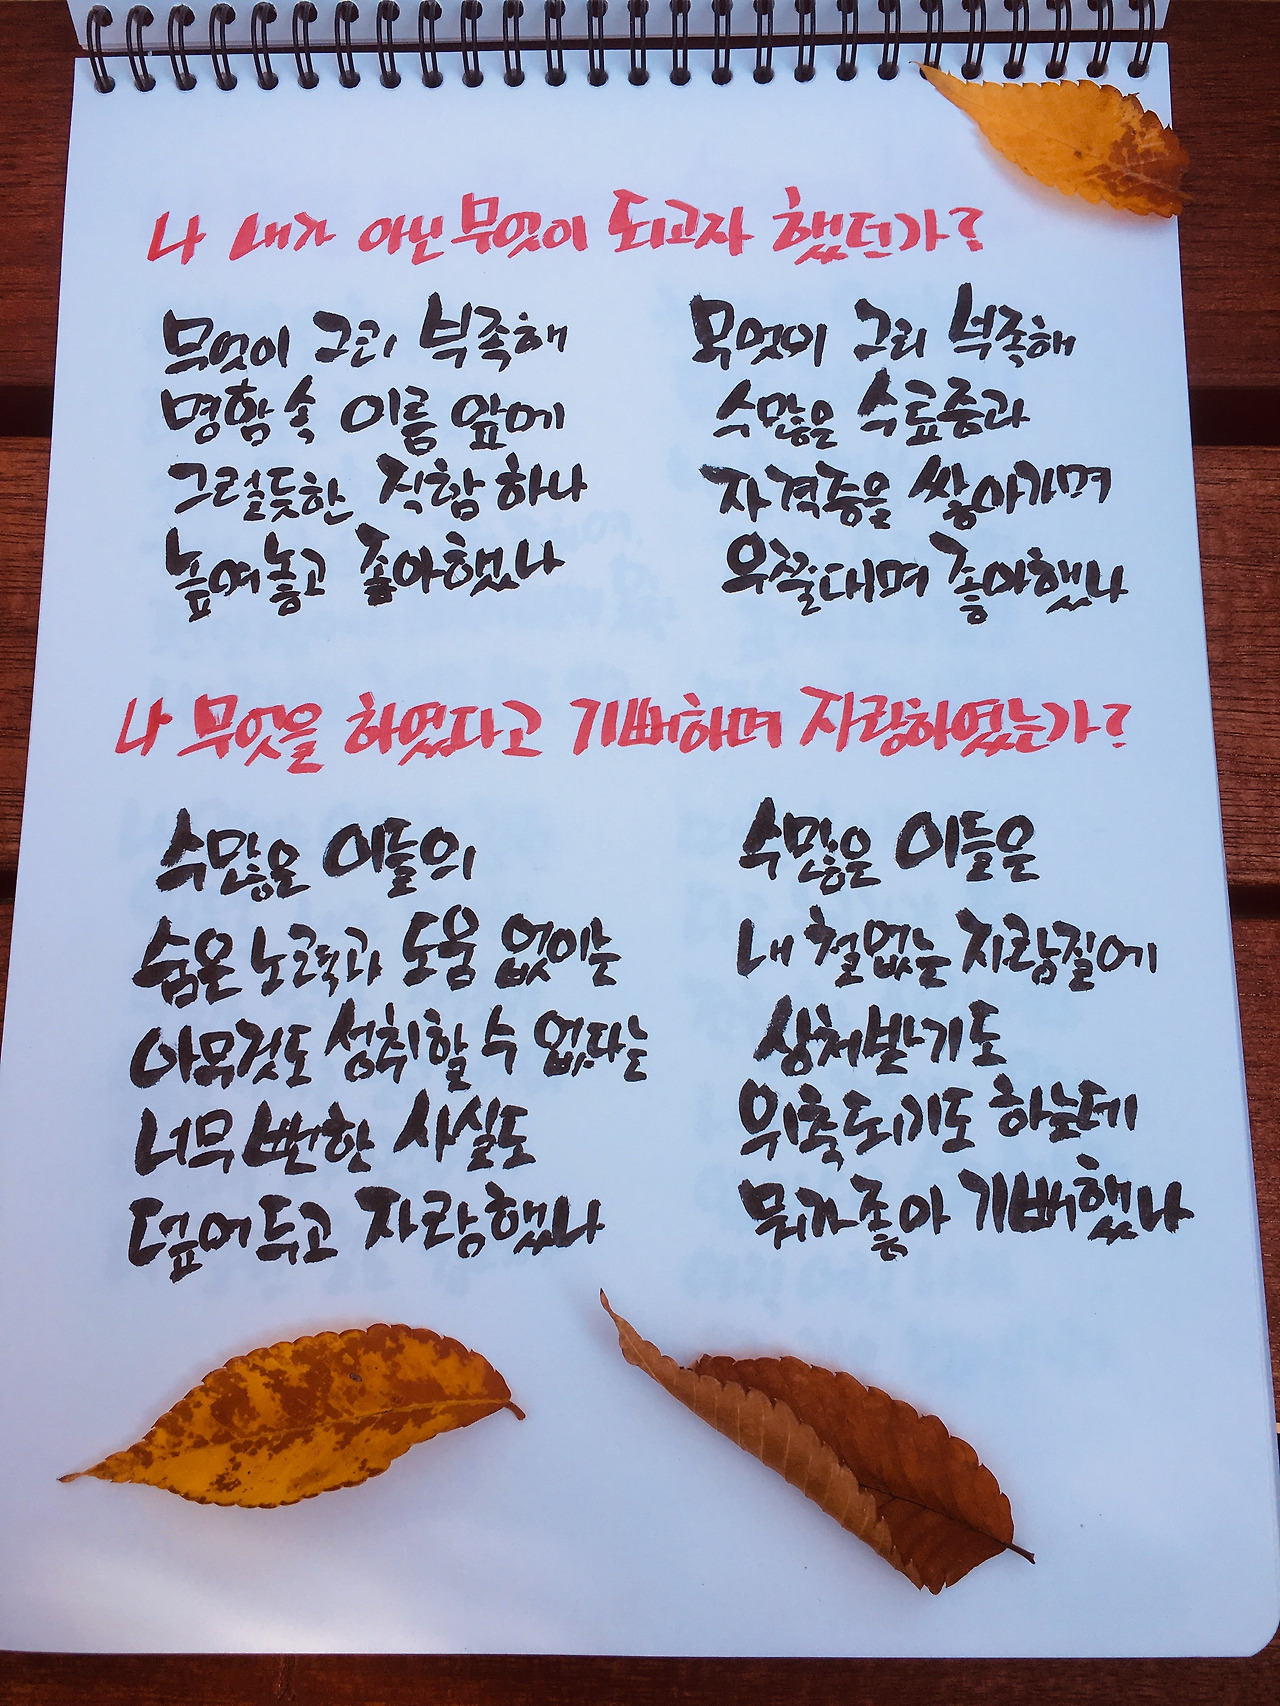 나 내가 아닌 무엇이 되고자 했던가?
무엇이 그리 부족해
명함 속 이름 앞에
그럴듯한 직함 하나
높여놓고 좋아했나
무엇이 그리 부족해
수많은 수료증과
자격증을 쌓아가며
우쭐대며 좋아했나
나 무엇을 하였다고 기뻐하며 자랑하였는가?
수많은 이들의
숨은 노력과 도움 없이는
아무것도 성취할 수 없다는
너무 뻔한 사실도
덮어두고 자랑했나
수많은 이들은
내 철없는 자랑질에
상처받기도
위축되기도 하는데
뭐가 좋아 기뻐했나